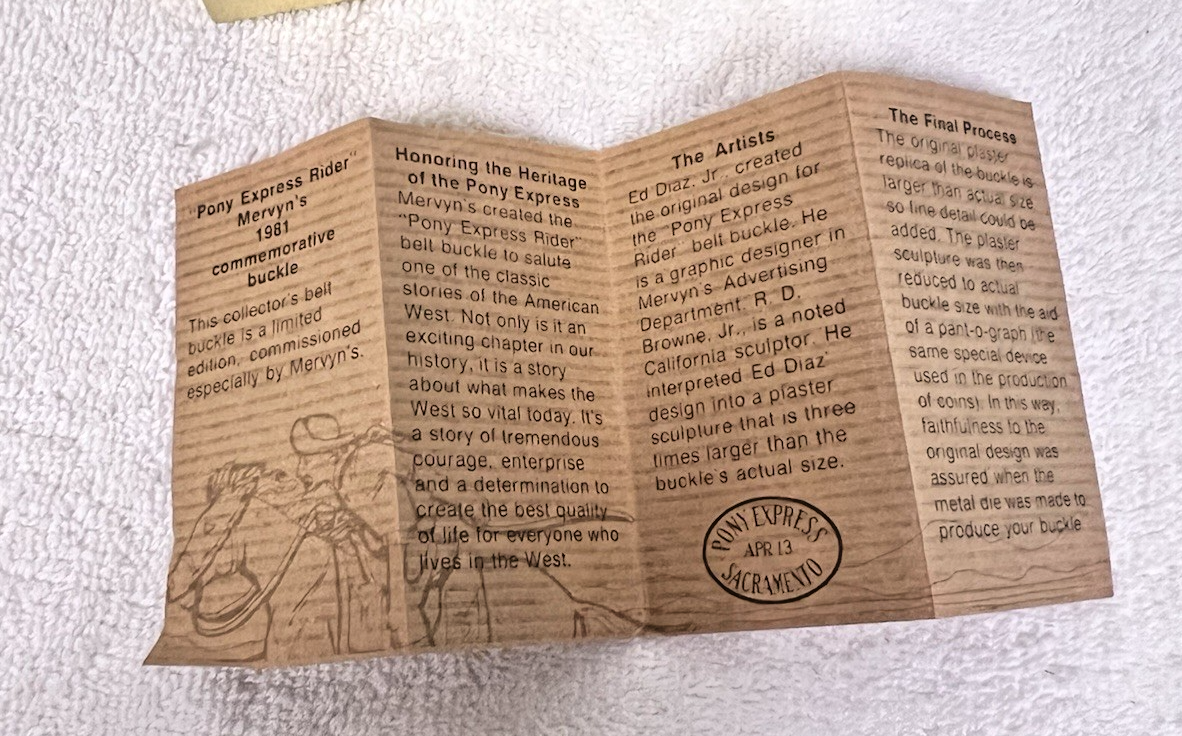 "Pony Express Rider"
Mervyn's
1981
commemorative
buckle
This collector's belt
buckle is a limited
edition, commissioned
especially by Mervyn's.
Honoring the Heritage
of the Pony Express
Mervyn's created the
"Pony Express Rider"
belt buckle to salute
one of the classic
stories of the American
West. Not only is it an
exciting chapter in our
history, it is a story
about what makes the
West so vital today. It's
a story of tremendous
courage, enterprise
and a determination to
create the best quality
of life for everyone who
lives in the West.
The Artists
Ed Diaz, Jr., created
the original design for
the "Pony Express
Rider" belt buckle. He
is a graphic designer in
Mervyn's Advertising
Department. R. D.
Browne, Jr., is a noted
California sculptor. He
interpreted Ed Diaz'
design into a plaster
sculpture that is three
times larger than the
buckle's actual size.
PONY EXPRESS
APR 13
SACRAMENTO
The Final Process
The original plaster
replica of the buckle is
larger than actual size
so fine detail could be
added. The plaster
sculpture was then
reduced to actual
buckle size with the aid
of a pant-o-graph (the
same special device
used in the production
of coins). In this way,
faithfulness to the
original design was
assured when the
metal die was made to
produce your buckle